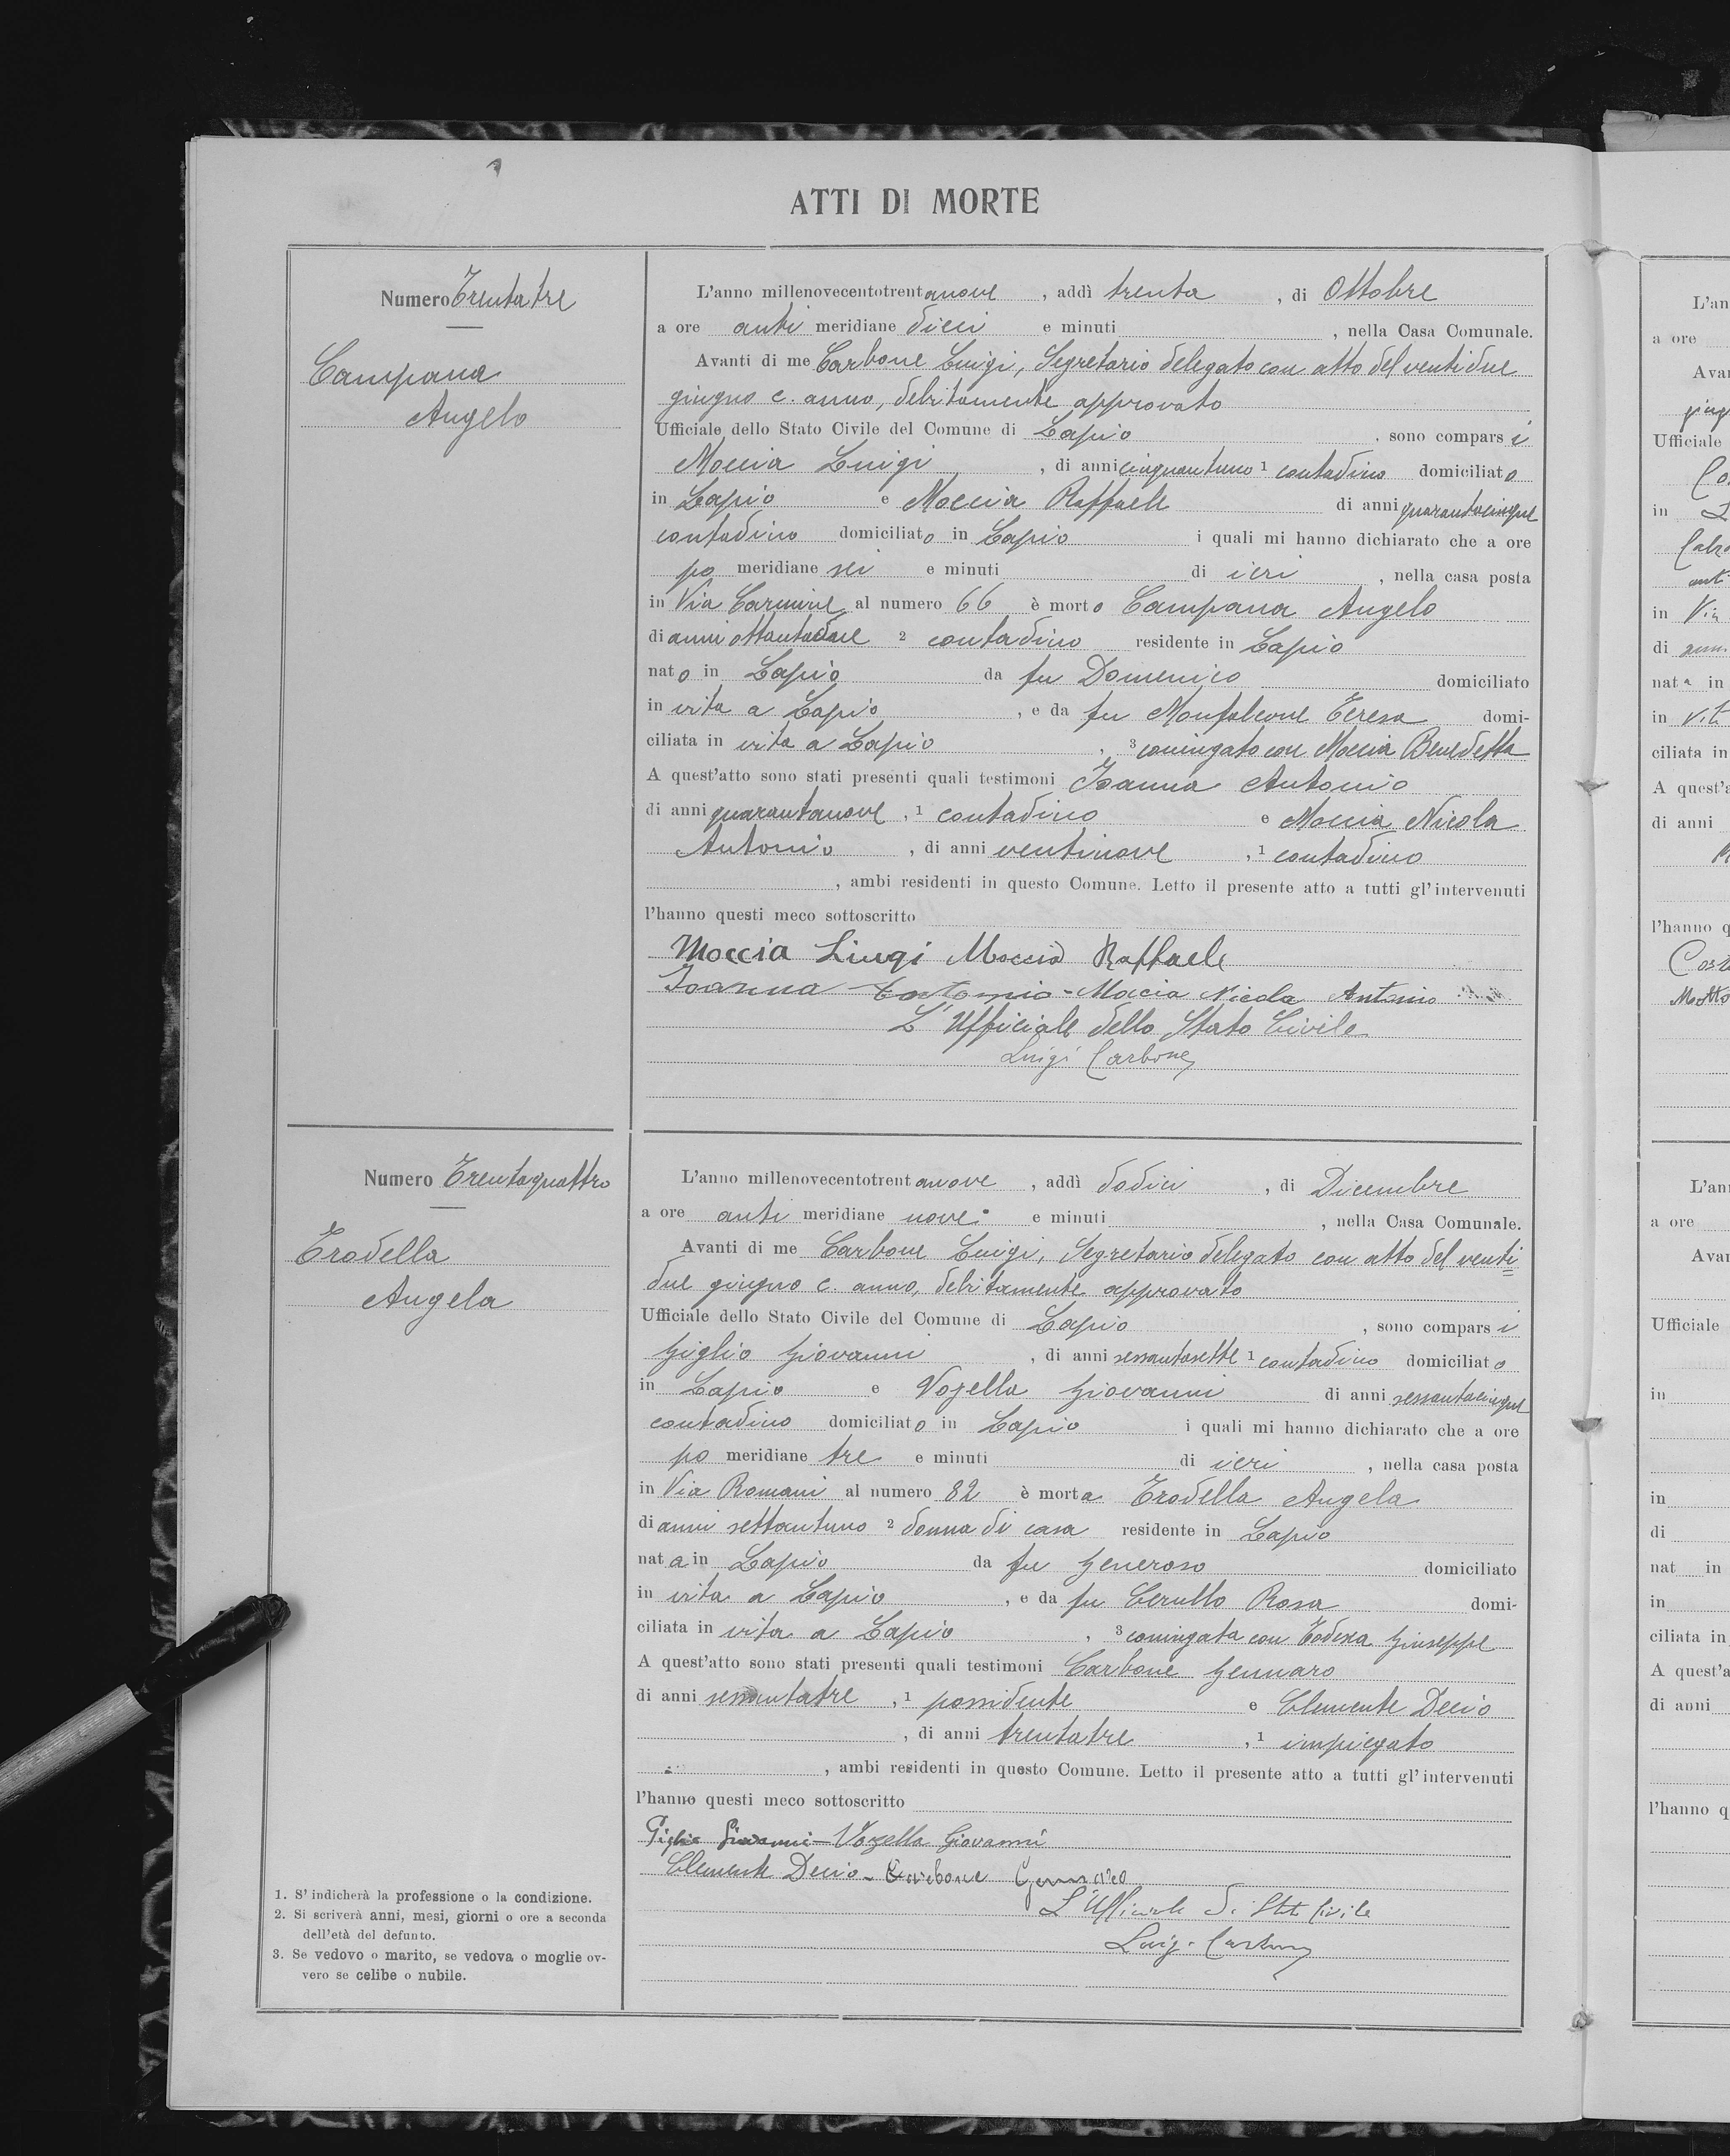 ATTI DI MORTE
Numero Trentatre
Campana
Angelo
L'anno millenovecentotrentanove, addì trenta, di Ottobre
a ore anti meridiane dieci e minuti , nella Casa Comunale.
Avanti di me Carbone Luigi, Segretario delegato con atto del ventidue
giugno c. anno, debitamente approvato
Ufficiale dello Stato Civile del Comune di Lapio, sono comparsi
Moccia Luigi, di anni cinquantuno 1 contadino domiciliato
in Lapio e Moccia Raffaele di anni quarantacinque
contadino domiciliato in Lapio i quali mi hanno dichiarato che a ore
po meridiane sei e minuti di ieri, nella casa posta
in Via Carmine al numero 66 è morto Campana Angelo
di anni ottantadue 2 contadino residente in Lapio
nato in Lapio da fu Domenico domiciliato
in vita a Lapio, e da fu Monfalcone Teresa domi-
ciliata in vita a Lapio, 3 coniugato con Moccia Benedetta
A quest'atto sono stati presenti quali testimoni Ioanna Antonio
di anni quarantanove, 1 contadino e Moccia Nicola
Antonio, di anni ventinove, 1 contadino
, ambi residenti in questo Comune. Letto il presente atto a tutti gl'intervenuti
l'hanno questi meco sottoscritto
Moccia Liugi Moccia Raffaele
Ioanna Antonio - Moccia Nicola Antonio
L'Ufficiale dello Stato Civile
Luigi Carbone
Numero Trentaquattro
Trodella
Angela
L'anno millenovecentotrentanove, addì dodici, di Dicembre
a ore anti meridiane nove e minuti , nella Casa Comunale.
Avanti di me Carbone Luigi, Segretario delegato con atto del venti=
due giugno c. anno, debitamente approvato
Ufficiale dello Stato Civile del Comune di Lapio, sono comparsi
Giglio Giovanni, di anni sessantasette 1 contadino domiciliato
in Lapio e Vozella Giovanni di anni sessantacinque
contadino domiciliato in Lapio i quali mi hanno dichiarato che a ore
po meridiane tre e minuti di ieri, nella casa posta
in Via Romani al numero 82 è morta Trodella Angela
di anni settantuno 2 donna di casa residente in Lapio
nata in Lapio da fu Generoso domiciliato
in vita a Lapio, e da fu Cerullo Rosa domi-
ciliata in vita a Lapio, 3 coniugata con Giuseppe
A quest'atto sono stati presenti quali testimoni Carbone Gennaro
di anni sessantatre, 1 possidente e Clemente Decio
, di anni trentatre, 1 impiegato
, ambi residenti in questo Comune. Letto il presente atto a tutti gl'intervenuti
l'hanno questi meco sottoscritto
Giglio Giovanni - Vozella Giovanni
Clemente Decio - Carbone Gennaro
L'Ufficiale di Stato Civile
Luigi Carbone
1. S'indicherà la professione o la condizione.
2. Si scriverà anni, mesi, giorni o ore a seconda
dell'età del defunto.
3. Se vedovo o marito, se vedova o moglie ov-
vero se celibe o nubile.
L'an
a ore
Avan
giug
Ufficiale
in
in Via
di
nata in
in vit
ciliata in
A quest'a
di anni
l'hanno q
L'ann
a ore
Avan
Ufficiale
in
in
di
nat in
in
ciliata in
A quest'a
di anni
l'hanno q